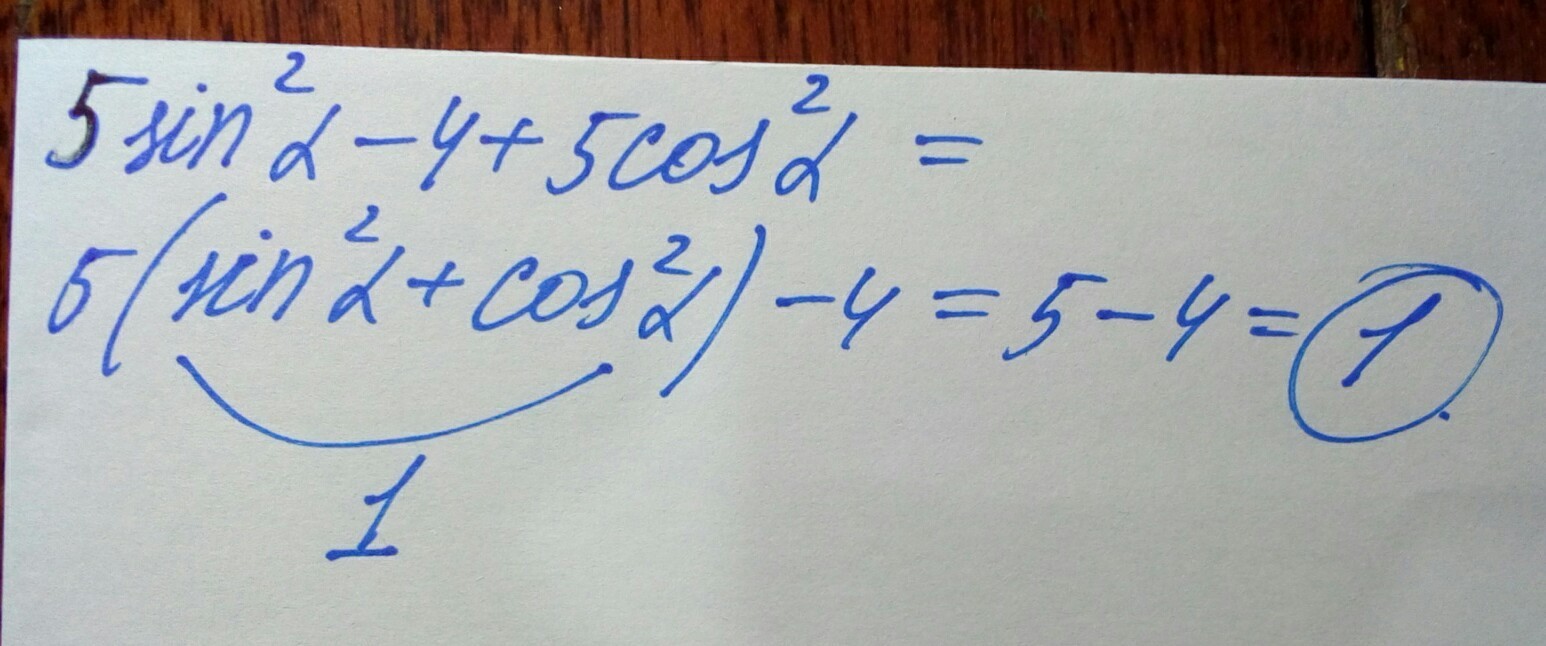 5sin²α-4+5cos²α =
5(sin²α+cos²α)-4=5-4=1
1